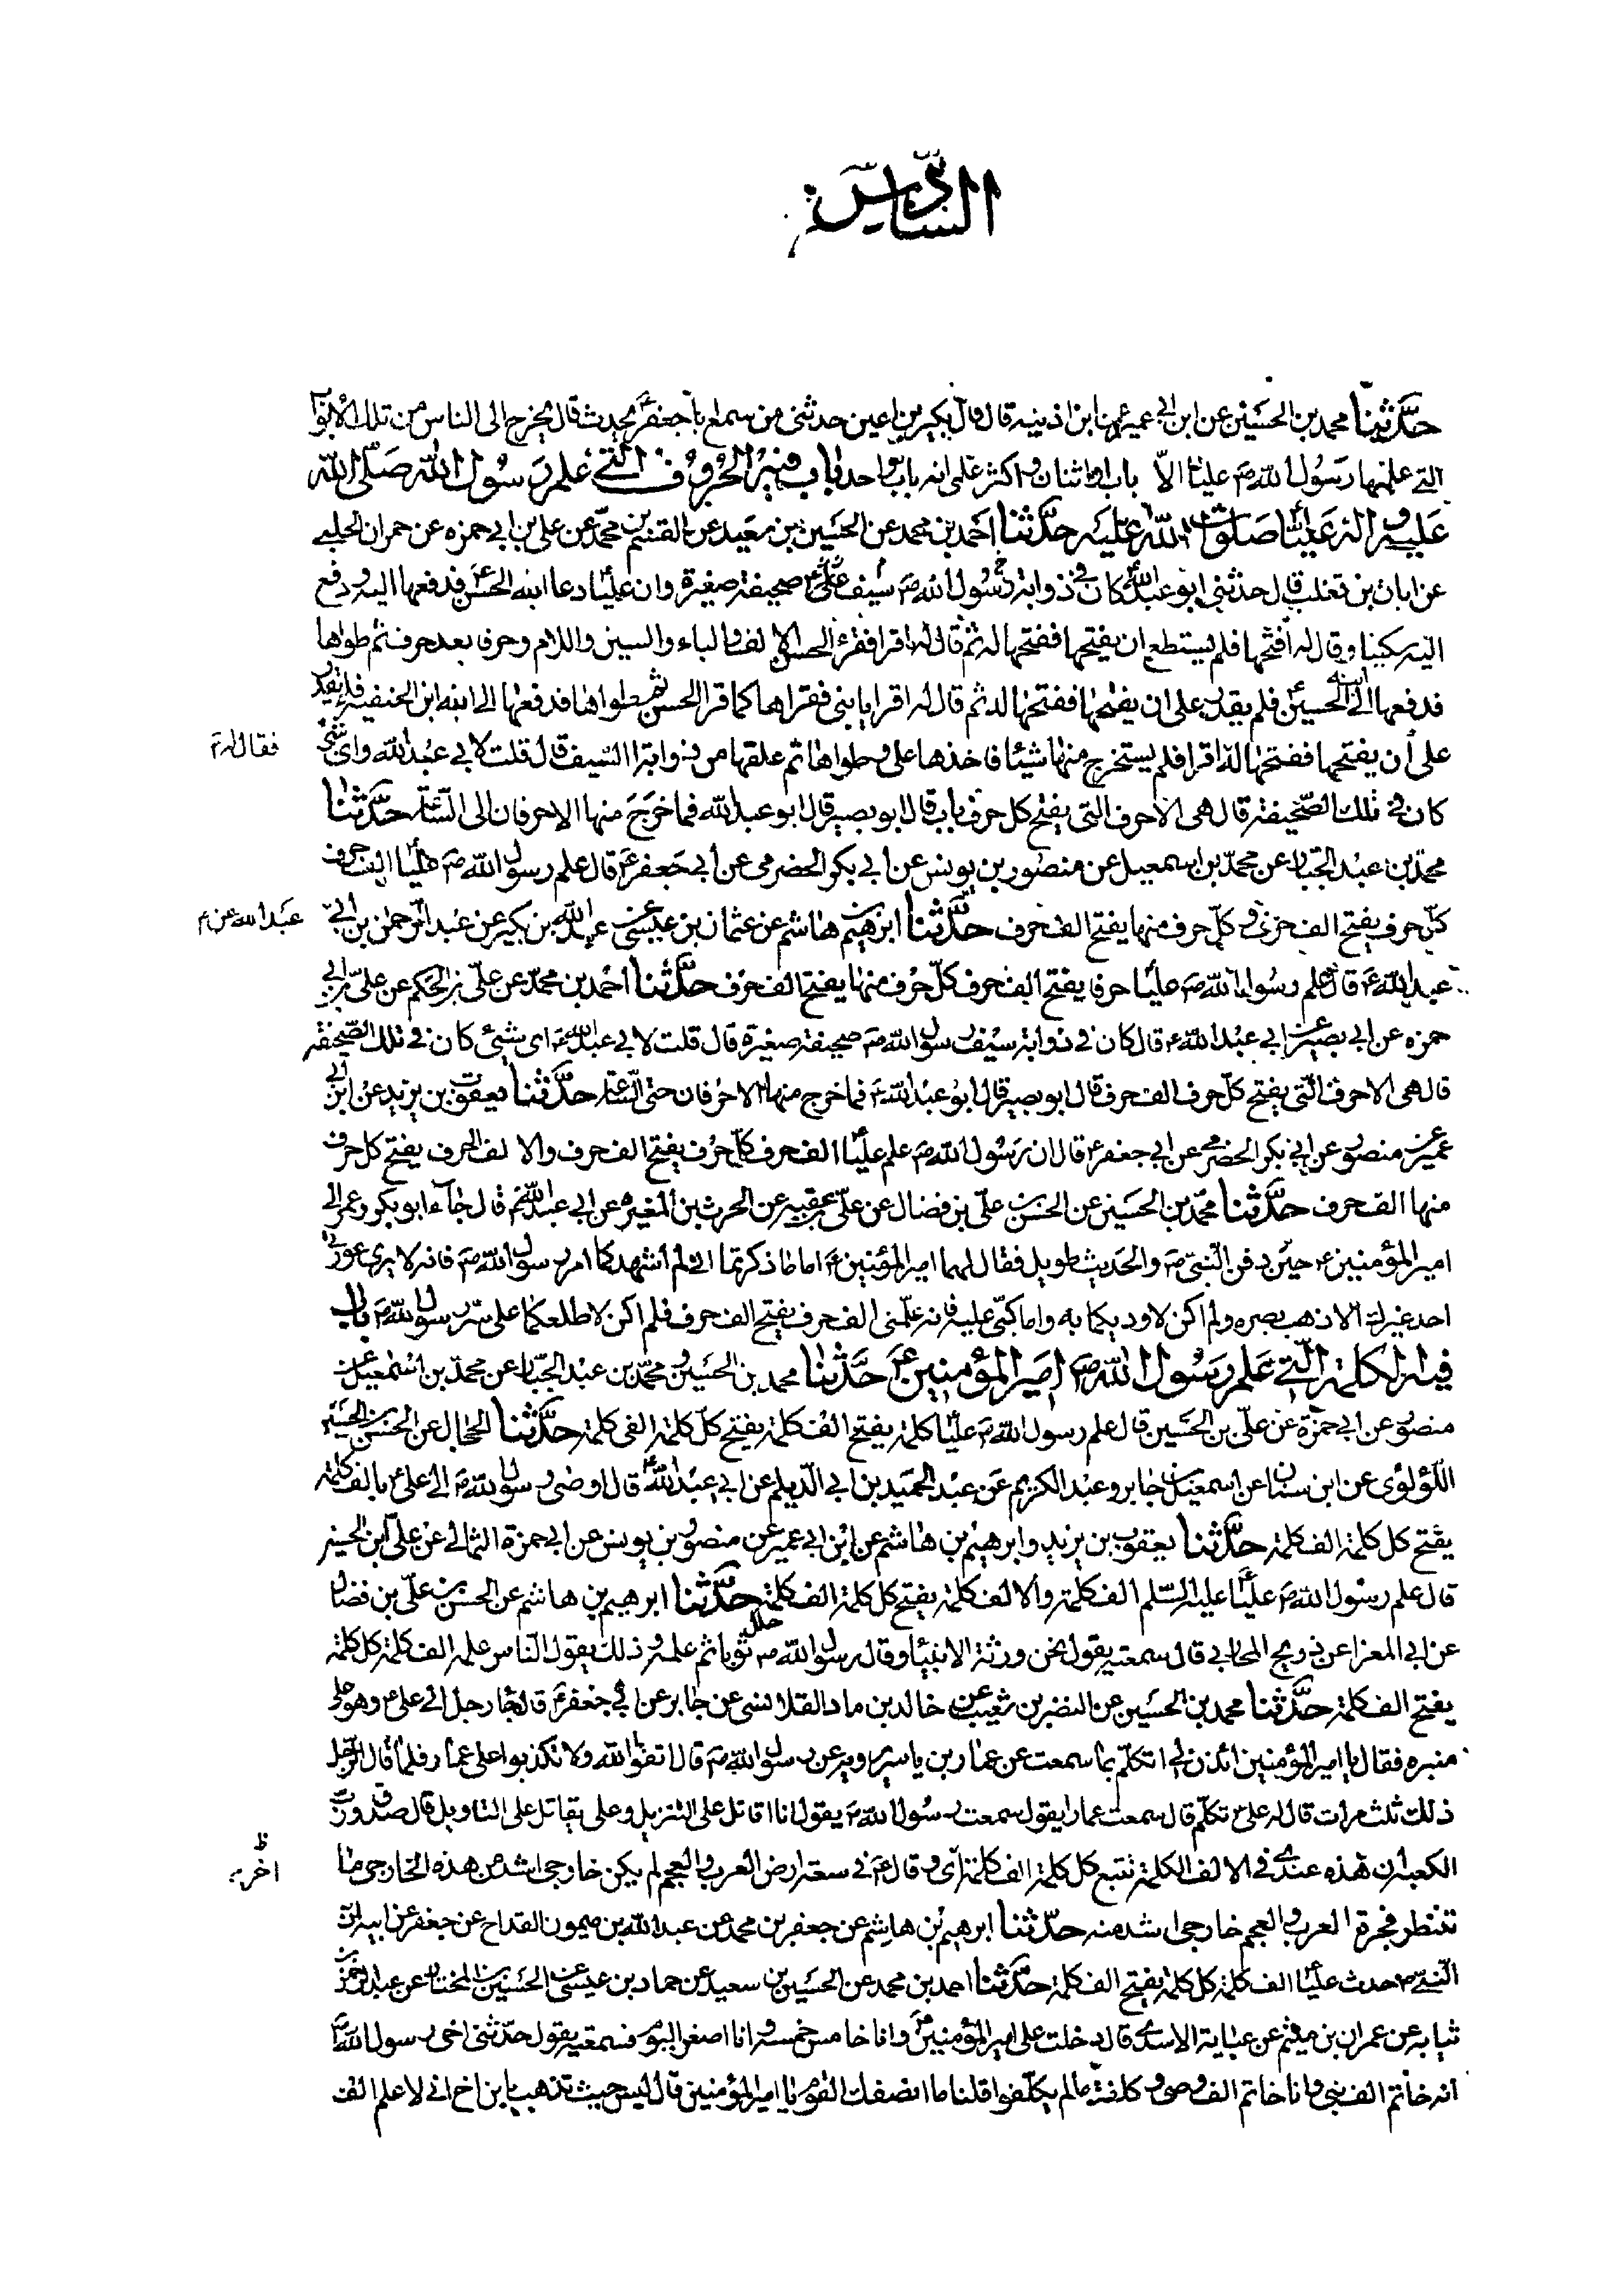 السادس
حدثنا محمد بن الحسين عن ابن ابي عمير عن ابن اذينه قال قال بكير بن اعين حدثنى من سمع ابا جعفر ع يحدث قال يخرج الى الناس من تلك الأبواب
التي علمها رسول الله ص عليا الا باب او اثنان و اكثر علمى انه باب واحد باب فيه الحروف التي علم رسول الله صلى الله
عليه و اله عليا صلوات الله عليه حدثنا احمد بن محمد عن الحسين بن سعيد عن القسم بن محمد عن على بن ابي حمزه عن حمران الحلبي
عن ابان بن تغلب قال حدثنى ابو عبد الله ع كان في ذوابة رسول الله ص سيف على ع صحيفة صغيرة وان عليا دعا ابنه الحسن ع فدفعها اليه و دفع
اليه سكينا وقال له افتحها فلم يستطع ان يفتحها ففتحها له ثم قال له اقرا فقرء الحسن الالف والباء والسين واللام وحرفا بعد حرف ثم طواها
فدفعها الى ابنه الحسين ع فلم يقدر على ان يفتحها ففتحها له ثم قال له اقرا يا بنى فقراها كما قرا الحسن ثم طواها فدفعها الى ابنه ابن الحنفيه فلم يقدر
على أن يفتحها ففتحها له اقرا فلم يستخرج منها شيئا فاخذها على و طواها ثم علقها من ذوابة السيف قال قلت لابي عبد الله واى شئ
فقال له
كان في تلك الصحيفة قال هى الاحرف التى يفتح كل حرف باب قال ابو بصير قال ابو عبد الله فما خرج منها الا حرفان الى الساعة حدثنا
محمد بن عبد الجبار عن محمد بن اسمعيل عن منصور بن يونس عن ابي بكر الحضرمى عن ابي جعفر ع قال علم رسول الله ص عليا الف حرف
كل حرف يفتح الف حرف و كل حرف منها يفتح الف حرف حدثنا ابرهيم بن هاشم عن عثمان بن عيسى عن عبد الله بن بكير عن عبد الرحمن بن ابي
عبد الله عن
عبد الله ع قال علم رسول الله ص عليا حرفا يفتح الف حرف كل حرف منها يفتح الف حرف حدثنا احمد بن محمد عن على بن الحكم عن على بن ابي
حمزه عن ابي بصير عن ابي عبد الله ع قال كان في ذوابة سيف رسول الله ص صحيفة صغيرة قال قلت لابي عبد الله ع اى شيئ كان في تلك الصحيفة
قال هى الاحرف التى يفتح كل حرف الف حرف قال ابو بصير قال ابو عبد الله ع فما خرج منها الا حرفان حتى الساعة حدثنا يعقوب بن يزيد عن ابن ابي
عمير عن منصور عن ابي بكر الحضرمي عن ابي جعفر ع قال ان رسول الله ص علم عليا الف حرف كل حرف يفتح الف حرف والالف الحرف يفتح كل حرف
منها الف حرف حدثنا محمد بن الحسين عن الحسن بن على بن فضال عن على بن عقبه عن الحرث بن المغيره عن ابي عبد الله ع قال جاء ابو بكر وعمر الى
امير المؤمنين ع حين دفن النبى ص والحديث طويل فقال لهما امير المؤمنين ع اما ما ذكرتما اني لم أشهدكما امر رسول الله ص فانه لا يرى عورتي
احد غيرك الا ذهب بصره ولم اكن لاوذيكما به واما كبى عليه فانه علمنى الف حرف يفتح الف حرف فلم اكن لاطلعكما على سر رسول الله ص باب
فيه الكلمة التي علم رسول الله ص امير المؤمنين ع حدثنا محمد بن الحسين و محمد بن عبد الجبار عن محمد بن اسمعيل عن
منصور عن ابي حمزة عن على بن الحسين قال علم رسول الله ص عليا كلمة يفتح الف كلمة يفتح كل كلمة الف كلمة حدثنا الحجال عن الحسن بن الحسين
اللؤلؤى عن ابن سنان عن اسمعيل بن جابر و عبد الكريم عن عبد الحميد بن ابي الديلم عن ابي عبد الله ع قال اوصى رسول الله ص الى على ع بالف كلمة
يفتح كل كلمة الف كلمة حدثنا يعقوب بن يزيد و ابرهيم بن هاشم عن ابن ابي عمير عن منصور بن يونس عن ابي حمزة الثمالي عن على ابن الحسين
قال علم رسول الله ص عليا عليه السلم الف كلمة والالف كلمة يفتح كل كلمة الف كلمة حدثنا ابرهيم بن هاشم عن الحسن بن على بن فضال
عن ابي المعزا عن ذريح المحاربي قال سمعته يقول نحن ورثة الانبياء وقال جلل رسول الله ص ثوبا ثم علمه و ذلك يقول الناس علمه الف كلمة كل كلمة
يفتح الف كلمة حدثنا محمد بن الحسين عن النضر بن شعيب عن خالد بن ماد القلانسى عن جابر عن ابي جعفر ع قال جاء رجل الى على ع وهو على
منبره فقال يا امير المؤمنين ائذن لي اتكلم بما سمعت عن عمار بن ياسر يرويه عن رسول الله ص قال اتقوا الله ولا تكذبوا على عمار فلما قال الرجل
ذلك ثلث مرات قال له على ع تكلم قال سمعت عمارا يقول سمعت رسول الله ص يقول انا اقاتل على التنزيل وعلى يقاتل على التاويل قال صدق ورب
الكعبة ان هذه عندى في الالف الكلمة تتبع كل كلمة الف كلمة و قال ع في سعة ارض العرب والعجم لم يكن خارجى اشد من هذه الخارجى ما
اخر ظ
تنتظر فجرة العرب والعجم خارجى اشد منه حدثنا ابرهيم بن هاشم عن جعفر بن محمد عن عبد الله بن ميمون القداح عن جعفر عن ابيه ان
النبى ص حدث عليا الف كلمة كل كلمة يفتح الف كلمة حدثنا احمد بن محمد عن الحسين بن سعيد عن حماد بن عيسى عن الحسين بن المختار عن عبد الرحمن
بن سيابه عن عمران بن ميثم عن عباية الاسدى قال دخلت على امير المؤمنين ع وانا خامس خمسة و انا اصغر القوم فسمعته يقول حدثنى اخى رسول الله ص
انه خاتم الف نبى وانا خاتم الف وصى و كلفت ما لم يكلفوا قلنا ما انصفك القوم يا امير المؤمنين قال ليس حيث تذهب يا بن اخ اني لاعلم الف